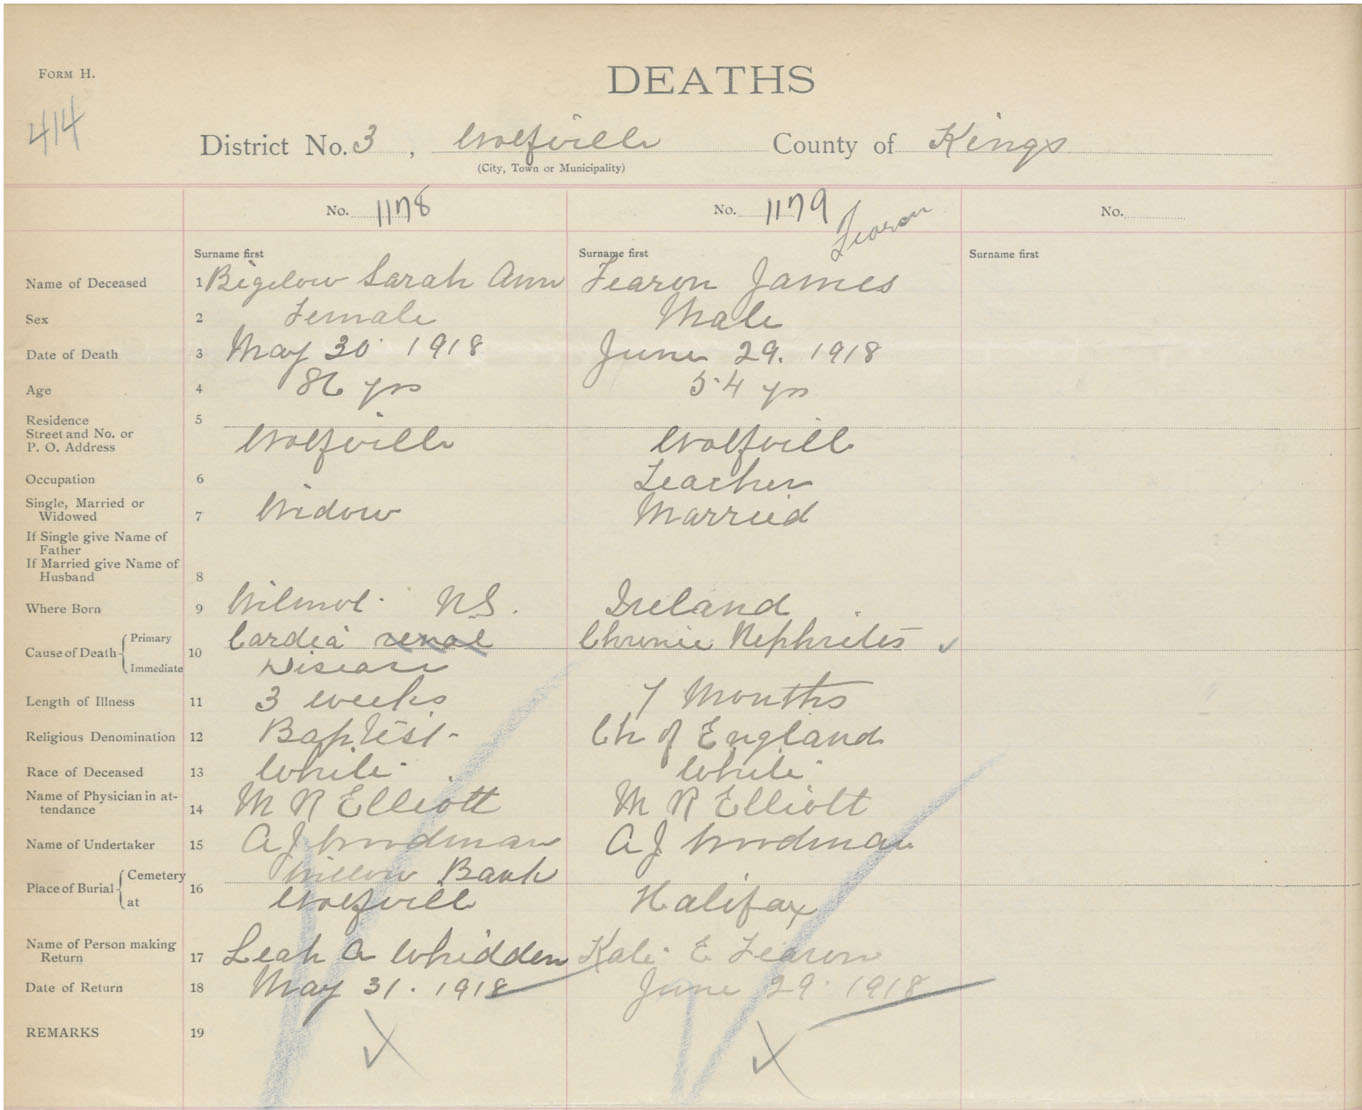 FORM H.
DEATHS
414
District No. 3, Wolfville County of Kings
(City, Town or Municipality)
No. 1178 No. 1179 No.
Fearon
Surname first Surname first Surname first
Name of Deceased 1 Bigelow Sarah Ann Fearon James
Sex 2 Female Male
Date of Death 3 May 30 1918 June 29. 1918
Age 4 86 yrs 54 yrs
Residence 5
Street and No. or
P. O. Address Wolfville Wolfvill
Occupation 6 Teacher
Single, Married or
Widowed 7 Widow Married
If Single give Name of
Father
If Married give Name of
Husband 8
Where Born 9 Wilmot. N.S. Ireland
Cause of Death Primary 10 Cardea renal Chronic Nephrites
Immediate Disease
Length of Illness 11 3 weeks 7 Months
Religious Denomination 12 Baptist Ch of England
Race of Deceased 13 White White
Name of Physician in at-
tendance 14 M R Elliott M R Elliott
Name of Undertaker 15 A J Woodman A J Woodman
Place of Burial Cemetery 16 Willow Bank
at Wolfvill Halifax
Name of Person making
Return 17 Leah A Whidden Kate E Fearon
Date of Return 18 May 31. 1918 June 29. 1918
REMARKS 19